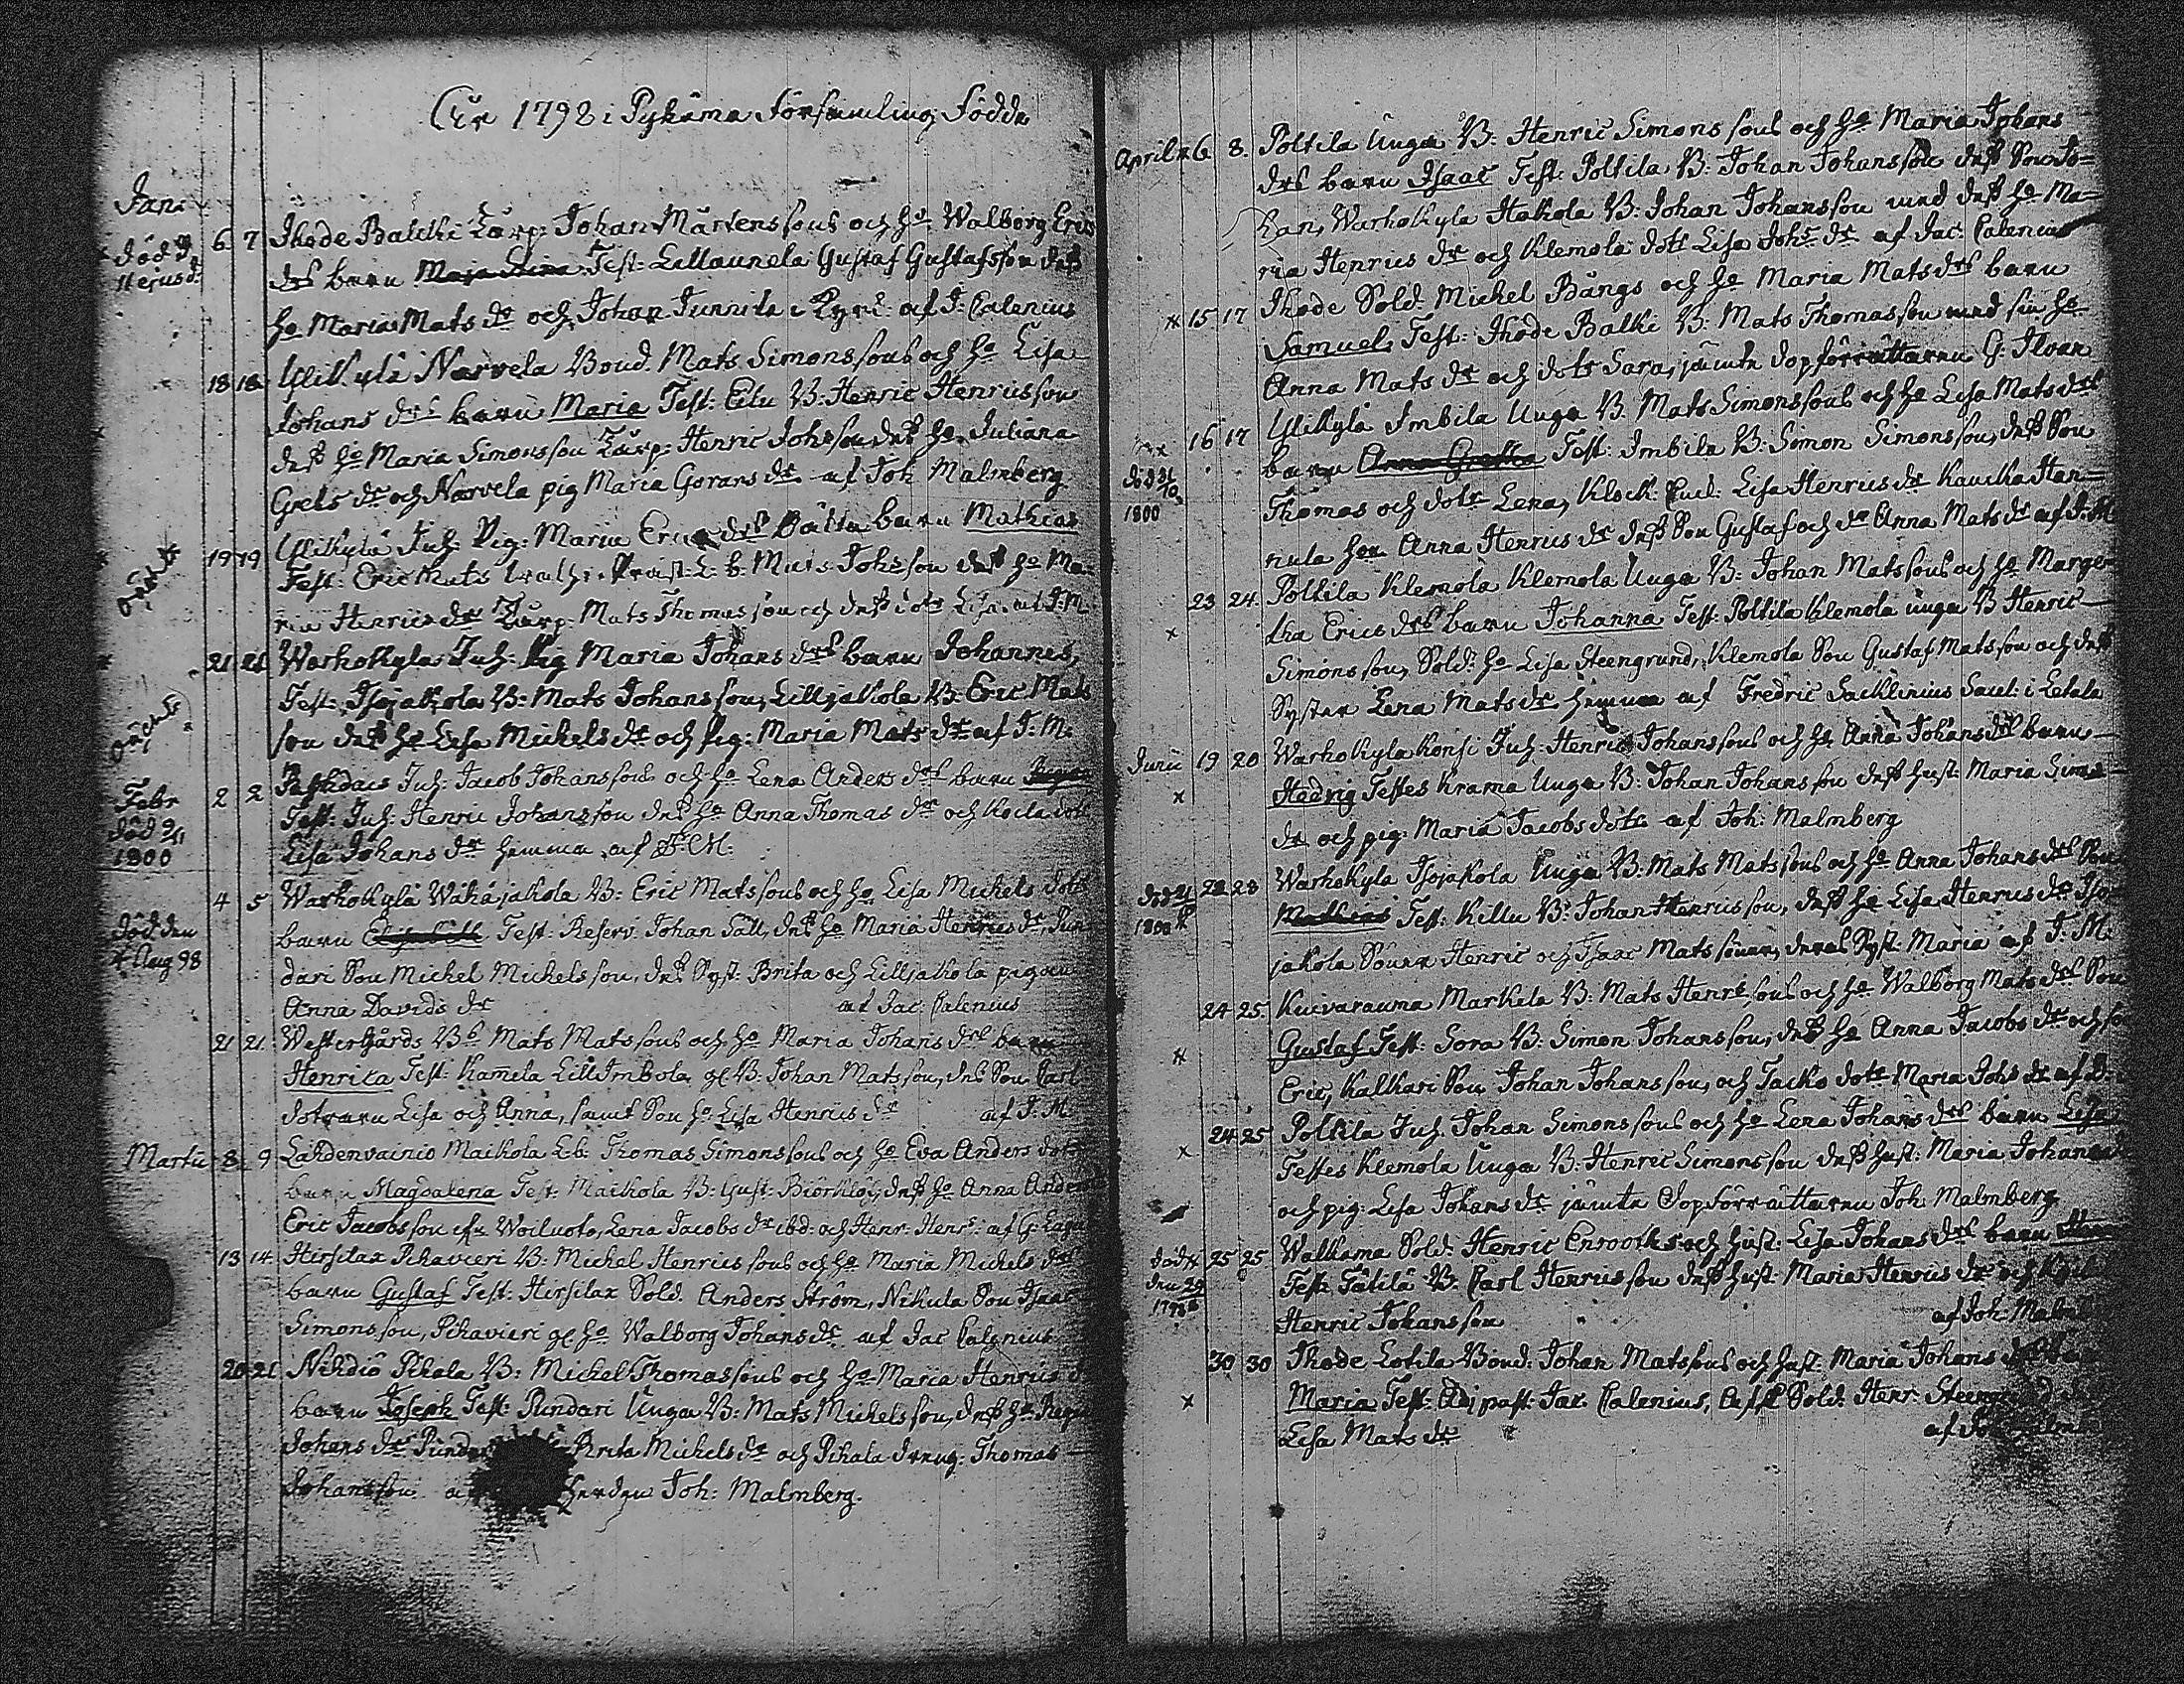 År 1798 i Pyhäma Församling Födde
Jan:
död d 6 7 Ihode Balcki Torp: Johan Mårtenssons och ho Walborg Erics
11 ejusd: drs barn Maja Stina Test: Lillaunela Gustaf Gustafsson dess
ho Maria Mats dr och Johan Junnila i Kyrc: af J: Calenius
18 18 Ylikylä Narvela Bond. Mats Simonssons och ho Lisa
Johans drs barn Maria Test: Eilu B: Henric Henricsson
dess ho Maria Simonsson Torp: Henric Johsson dess ho Juliana
Grels dr och Narvela pig Maria Görans dr af Joh Malmberg
19 19 Ylikylä Inh. Pig: Maria Erics drs oäkta barn Mathias
Test: Eric Mats L: b: Mats Johsson dess ho Ma-
ria Henrics dr Torp: Mats Thomasson och dess dotr Lisa af J: M
21 21 Warhokyla Inh: Pig Maria Johans drs barn Johannes,
Test: Isojakola B: Mats Johansson, Lilljakola B: Eric Mats
son dess ho Lisa Michels dr och pig: Maria Mats dr af J: M.
Febr 2 2 Inh: Jacob Johanssons och ho Lena Anders drs barn
död 9/11 Test: Inh: Henric Johansson dess ho Anna Thomas dr och dotr
1800 Lisa Johans dr hemma af J: M.
4 5 Warhokylä Wähäjakola B: Eric Matssons och ho Lisa Michels dotr
död den barn Elisabeth Test: Reserv: Johan Sall, dess ho Maria Henrics dr, Pun
4 Aug 98 dari Son Michel Michelsson, dess Syst: Brita och Lilljakola pigan
Anna Davids dr af Jac: Calenius
21 21 Westergårds Bs Mats Matssons och ho Maria Johans drs barn
Henrica Test: Kamela Lill Imbola gl B: Johan Matsson, dess Son Carl
dotrarn Lisa och Anna, samt Son ho Lisa Henrics dr af J. M
Martii 8 9 Lahdenvainio Maikola L: b: Thomas Simonssons och ho Eva Anders dotr
barn Magdalena Test: Maikola B: Gust: Biörklöf, dess ho Anna Anders
Eric Jacobsson ifr Woiluoto, Lena Jacobs dr ibd: och Henr: Henrs: af G:
13 14 Hirsilax Pihavieri B: Michel Henricssons och ho Maria Michels drs
barn Gustaf Test: Hirsilax Sold. Anders Ström, Nikula Son Isaac
Simonsson, Pihavieri gl ho Walborg Johans dr af Jac Calenius
20 21 Nihdiö Pihala B: Michel Thomassons och ho Maria Henrics d
barn Joseph Test: Pundari Unga B: Mats Michelsson, dess ho
Johans dr Brita Michels dr och Pihala dreng: Thomas
Johansson Joh: Malmberg.
April 6 8. Poltila Unga B: Henric Simonssons och ho Maria Johans
drs barn Isaac Test: Poltila B: Johan Johansson dess Son Jo=
han, Warhokyla Hakola B: Johan Johansson med dess ho Ma=
ria Henrics dr och Klemola dotr Lisa Johs dr af Jac: Calenius
x 15 17 Ihode Sold Michel Bångs och ho Maria Mats drs barn
Samuel Test: Ihode Balki B: Mats Thomasson med sin ho
Anna Mats dr och dotr Sara, jämte dopförrättaren G: Ilvan
16 17 Ylikylä Imbila Unga B: Mats Simonssons och ho Lisa Mats drs
död barn Anna Greta Test: Imbila B: Simon Simonsson, dess Son
1800 Thomas och dotr Lena, Klock: Lisa Henrics dr Han=
nula hon Anna Henrics dr dess Son Gustaf och dr Anna Mats dr af J. M
23 24. Poltila Klemola Klemola Unga B: Johan Matssons och ho Marge-
x tha Erics drs barn Johanna Test: Poltila Klemola unga B Henric
Simonsson, Sold: ho Lisa Steengrund, Klemola Son Gustaf Matsson och dess
Syster Lena Mats dr hemma af Fredric Sacklinius Sacel: i Letala
Junii 19 20 Warhokyla Konsi Inh: Henric Johanssons och ho Anna Johans drs barn
x Hedvig Testes Krama Unga B: Johan Johansson dess hust: Maria Simons
dr och pig: Maria Jacobs dotr af Joh: Malmberg
död 22 23 Warhokyla Isojakola Unga B: Mats Matssons och ho Anna Johans drs Son
1800 Mathias Test: Killu B: Johan Henricsson, dess ho Lisa Henrics dr Iso-
jakola Söner Henric och Isaac Matssöner, deras Syst: Maria af J. M.
24 25 Kuivarauma Markela B: Mats Henricssons och ho Walborg Mats drs Son
x Gustaf Test: Sora B: Simon Johansson, dess ho Anna Jacobs dr och
Eric, Kalkari Son Johan Johansson, och Jacko dotr Maria Johs dr af
24 25 Poltila Inh. Johan Simonssons och ho Lena Johans drs barn Lisa
x Testes Klemola Unga B: Henric Simonsson dess hust: Maria Johans
och pig: Lisa Johans dr jämte Dopförrättaren Joh Malmberg
död 25 25 Walkama Sold: Henric Enrooths och hust: Lisa Johans drs barn
den 29 Test: Tätilä B: Carl Henricsson dess hust: Maria Henrics dr och
1798 Henric Johansson af Joh: Malm
30 30 Ihode Lotila Bond: Johan Matssons och hust: Maria Johans
x Maria Test: Adj past: Jac Calenius, Sold: Henr: Steen
Lisa Mats dr af